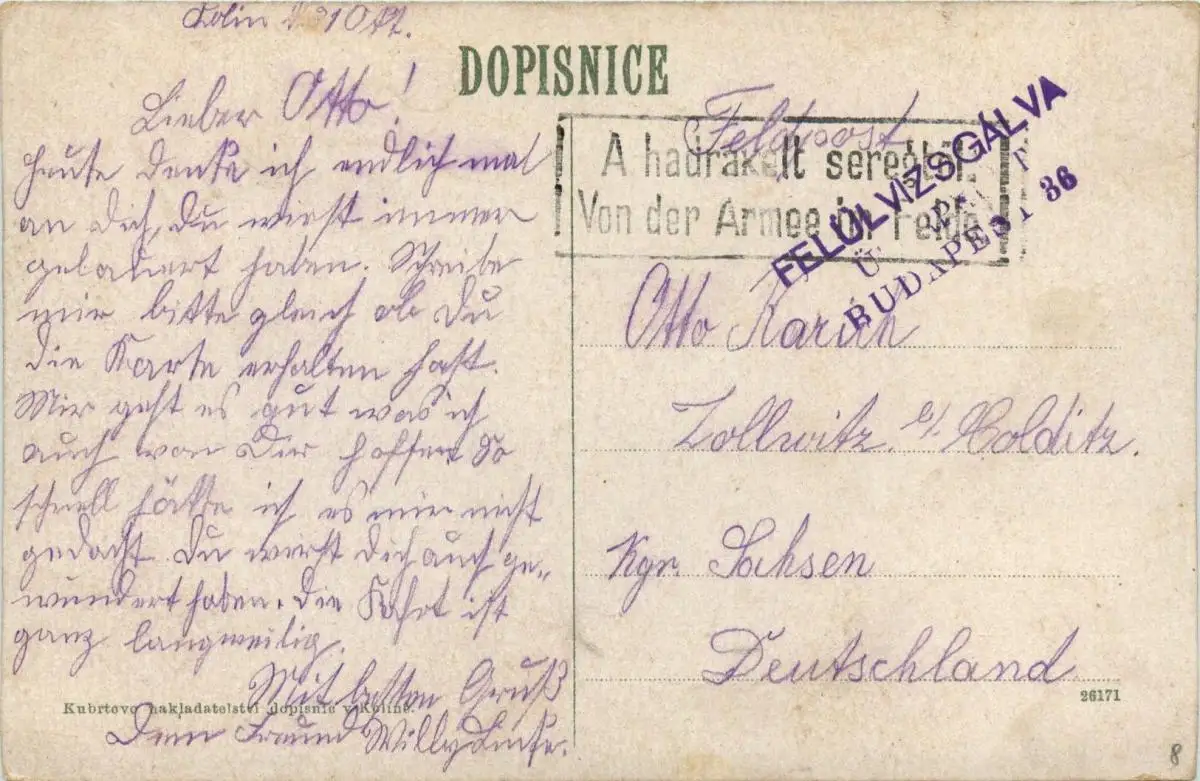 Kolin d. 31 Okt.
DOPISNICE
Lieber Otto!
heute denke ich endlich mal
an Dich, Du wirst immer
gelauert haben. Schreibe
mir bitte gleich ob Du
die Karte erhalten hast.
Mir geht es gut was ich
auch von Dir hoffe. So
schnell hätte ich es mir nicht
gedacht. Du wirst Dich auch ge„
wundert haben. Die Fahrt ist
ganz langweilig.
Mit besten Gruß
Dein Freund Willy
Kubrtovo nakladatelství dopisnic v Kolíně.
Feldpost
A hadrakelt seregtől.
Von der Armee im Felde
FELÜLVIZSGÁLVA
BUDAPEST 36
Otto
Zollwitz b/ Colditz.
Kgr. Sachsen
Deutschland
26171
8